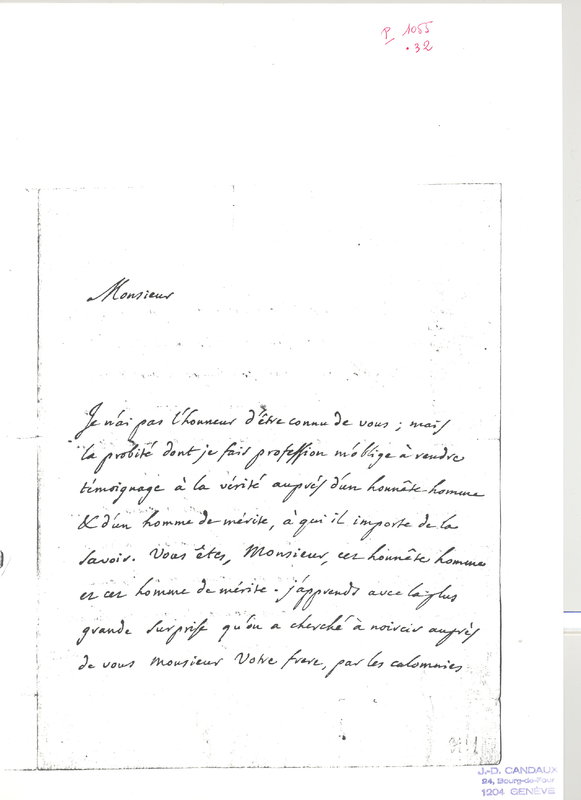 P 1055
.32
Monsieur
Je n'ai pas l'honneur d'être connu de vous ; mais
la probité dont je fais profession m'oblige à rendre
témoignage à la vérité auprès d'un honnête homme
& d'un homme de mérite, à qui il importe de la
savoir. Vous êtes, Monsieur, cet honnête homme
et cet homme de mérite. j'apprends avec la plus
grande surprise qu'on a cherché à noircir auprès
de vous Monsieur Votre frere, par les calomnies
J.-D. CANDAUX
24, Bourg-de-Four
1204 GENÈVE